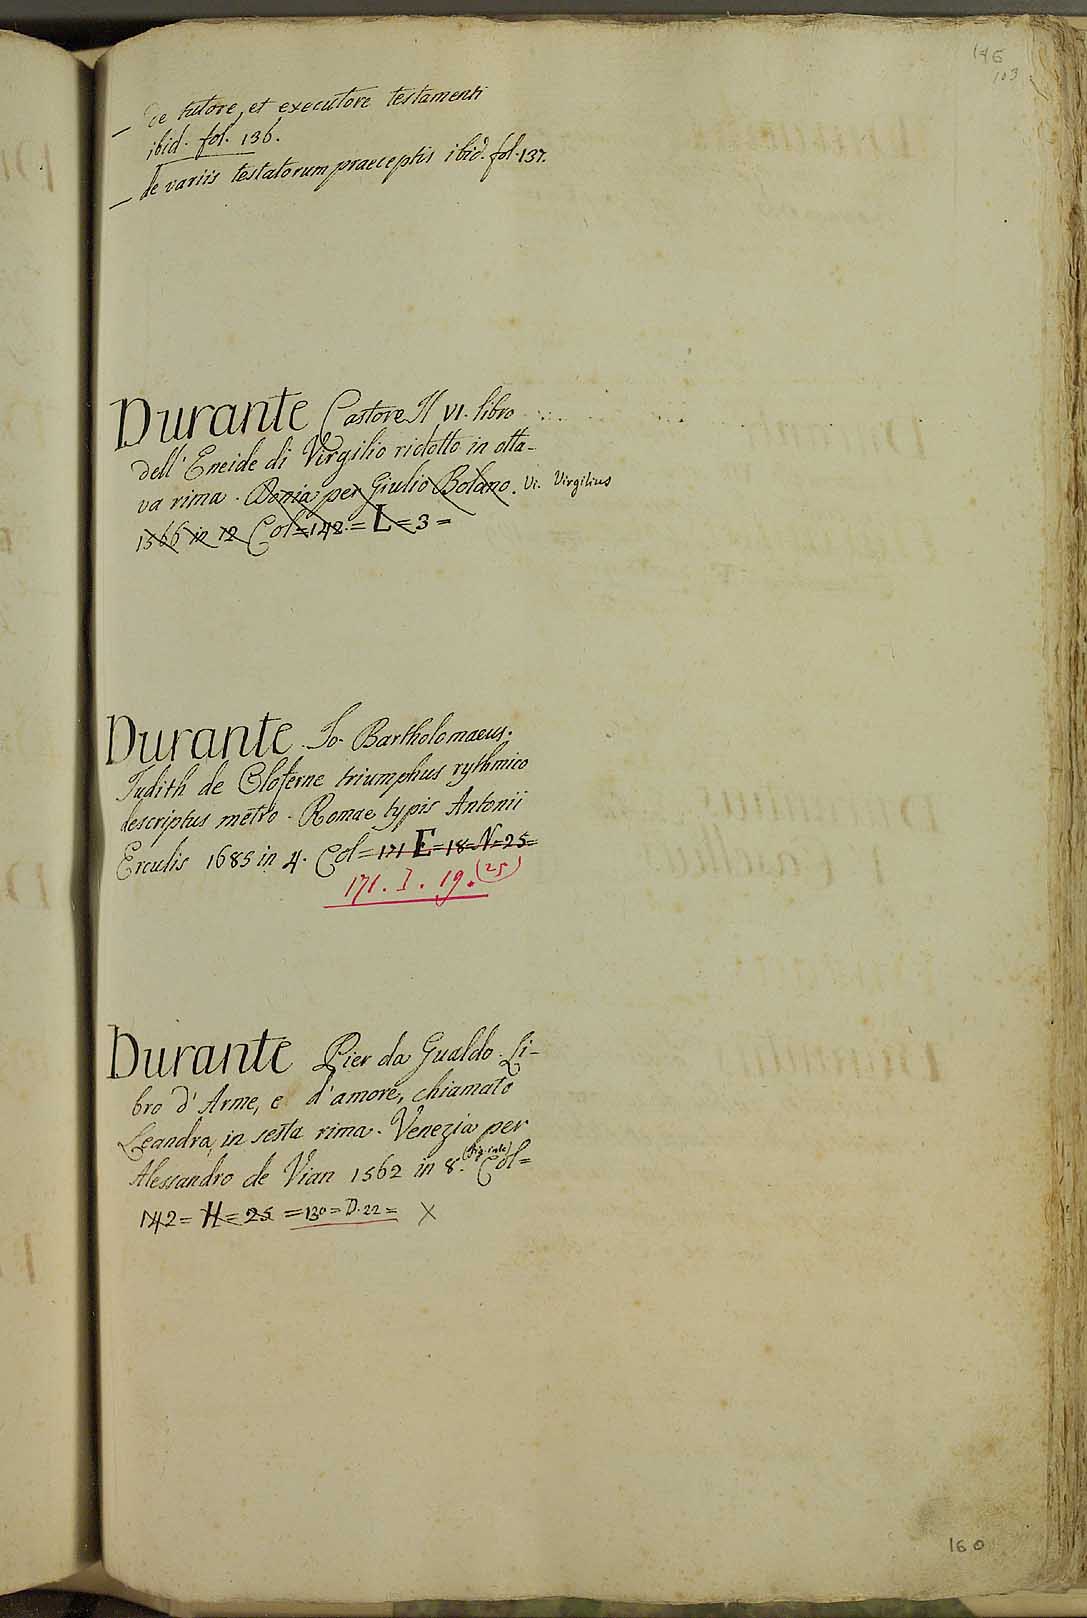 146
103
— De tutore, et executore testamenti
ibid. fol. 136.
— de variis testatorum praeceptis ibid. fol. 137.
Durante Castore Il VI. libro
dell' Eneide di Virgilio ridotto in otta-
va rima. per Giulio Bolano. Vi. Virgilius
1566 in 12 Col=142.=L=3=
Durante Io. Bartholomaeus.
Judith de Oloferne triumphus rythmico
descriptus metro. Romae typis Antonii
Erculis 1685 in 4. Col=171 E=18=N=25=
171. I. 19. (25)
Durante Pier da Gualdo. Li-
bro d'Arme, e d'amore, chiamato
Leandra, in sesta rima. Venezia per
Alessandro de Vian 1562 in 8. Col=
142= H= 25 =130=D.22= X
160